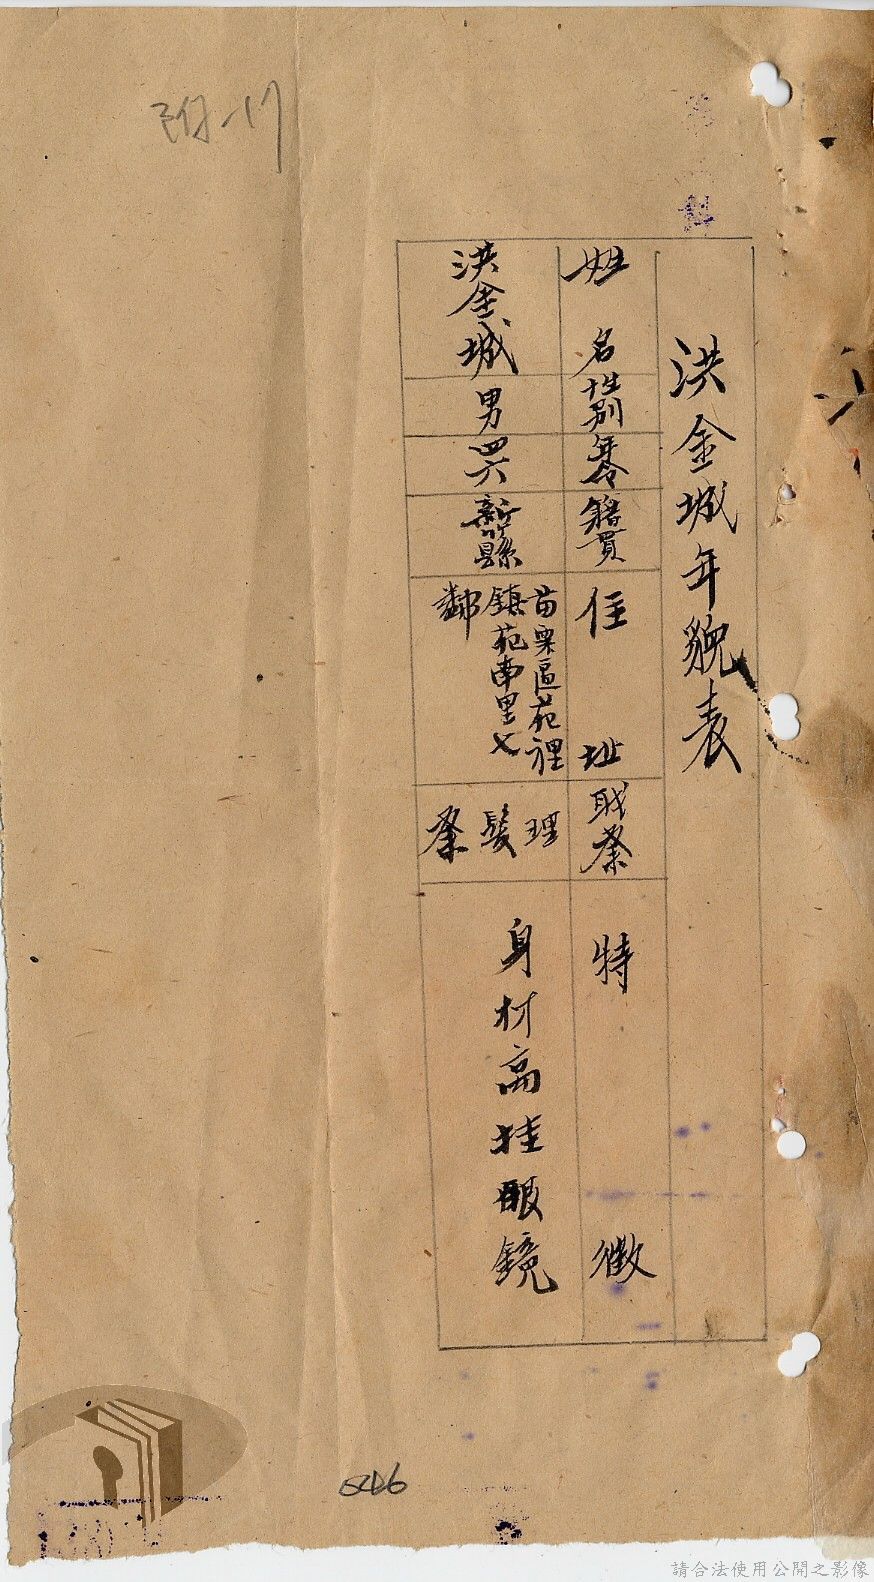 洪金城年貌表
姓名
性別
年令
籍貫
住址
职業
特徵
洪金城
男
四六
新竹縣
苗栗區苑裡
鎮苑南里七
鄰
理
髮
業
身材高挂眼鏡
附-17
046
請合法使用公開之影像